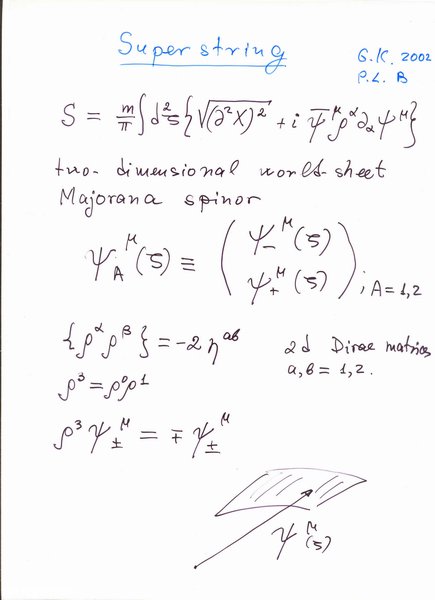 Superstring
G.K. 2002
P.L. B
S = m/π ∫ d²ξ { √(∂²X)² + i ψ̄^μ ρ^α ∂_α ψ^μ }
two-dimensional world-sheet
Majorana spinor
ψ_A^μ (ξ) ≡ ( ψ_-^μ (ξ)
ψ_+^μ (ξ) ) ; A = 1,2
{ρ^α ρ^β} = -2 η^{ab}
2d Dirac matrices
a, b = 1, 2.
ρ³ = ρ⁰ρ¹
ρ³ ψ_±^μ = ∓ ψ_±^μ
ψ^μ (ξ)